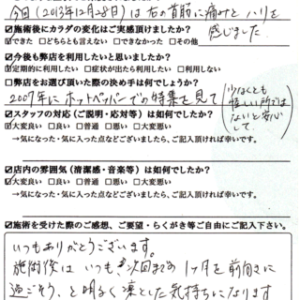 今回(2013年12月28日)は右の首筋に痛みとハリを感じました
☑施術後にカラダの変化はご実感頂けましたか?
☑できた □どちらとも言えない □できなかった □その他
☑今後も弊店を利用したいと思いましたか?
☑定期的に利用したい □症状が出たら利用したい □利用しない
□弊店をお選び頂いた際の決め手は何でしたか?
2007年にホットペッパーでの特集を見て(少なくとも怪しい所ではないと安心して)
☑スタッフの対応(ご説明・応対等)は如何でしたか?
☑大変良い □良い □普通 □悪い □大変悪い
→気になった・気に入った点などございましたら、ご記入頂ければ幸いです。
☑店内の雰囲気(清潔感・音楽等)は如何でしたか?
☑大変良い □良い □普通 □悪い □大変悪い
→気になった・気に入った点などございましたら、ご記入頂ければ幸いです。
☑施術を受けた際のご感想、ご要望・らくがき等ご自由にご記入下さい。
いつもありがとうございます。
施術後は いつも 次回までの1ヶ月を前向きに
過ごそう、と明るく凛とした気持ちになります